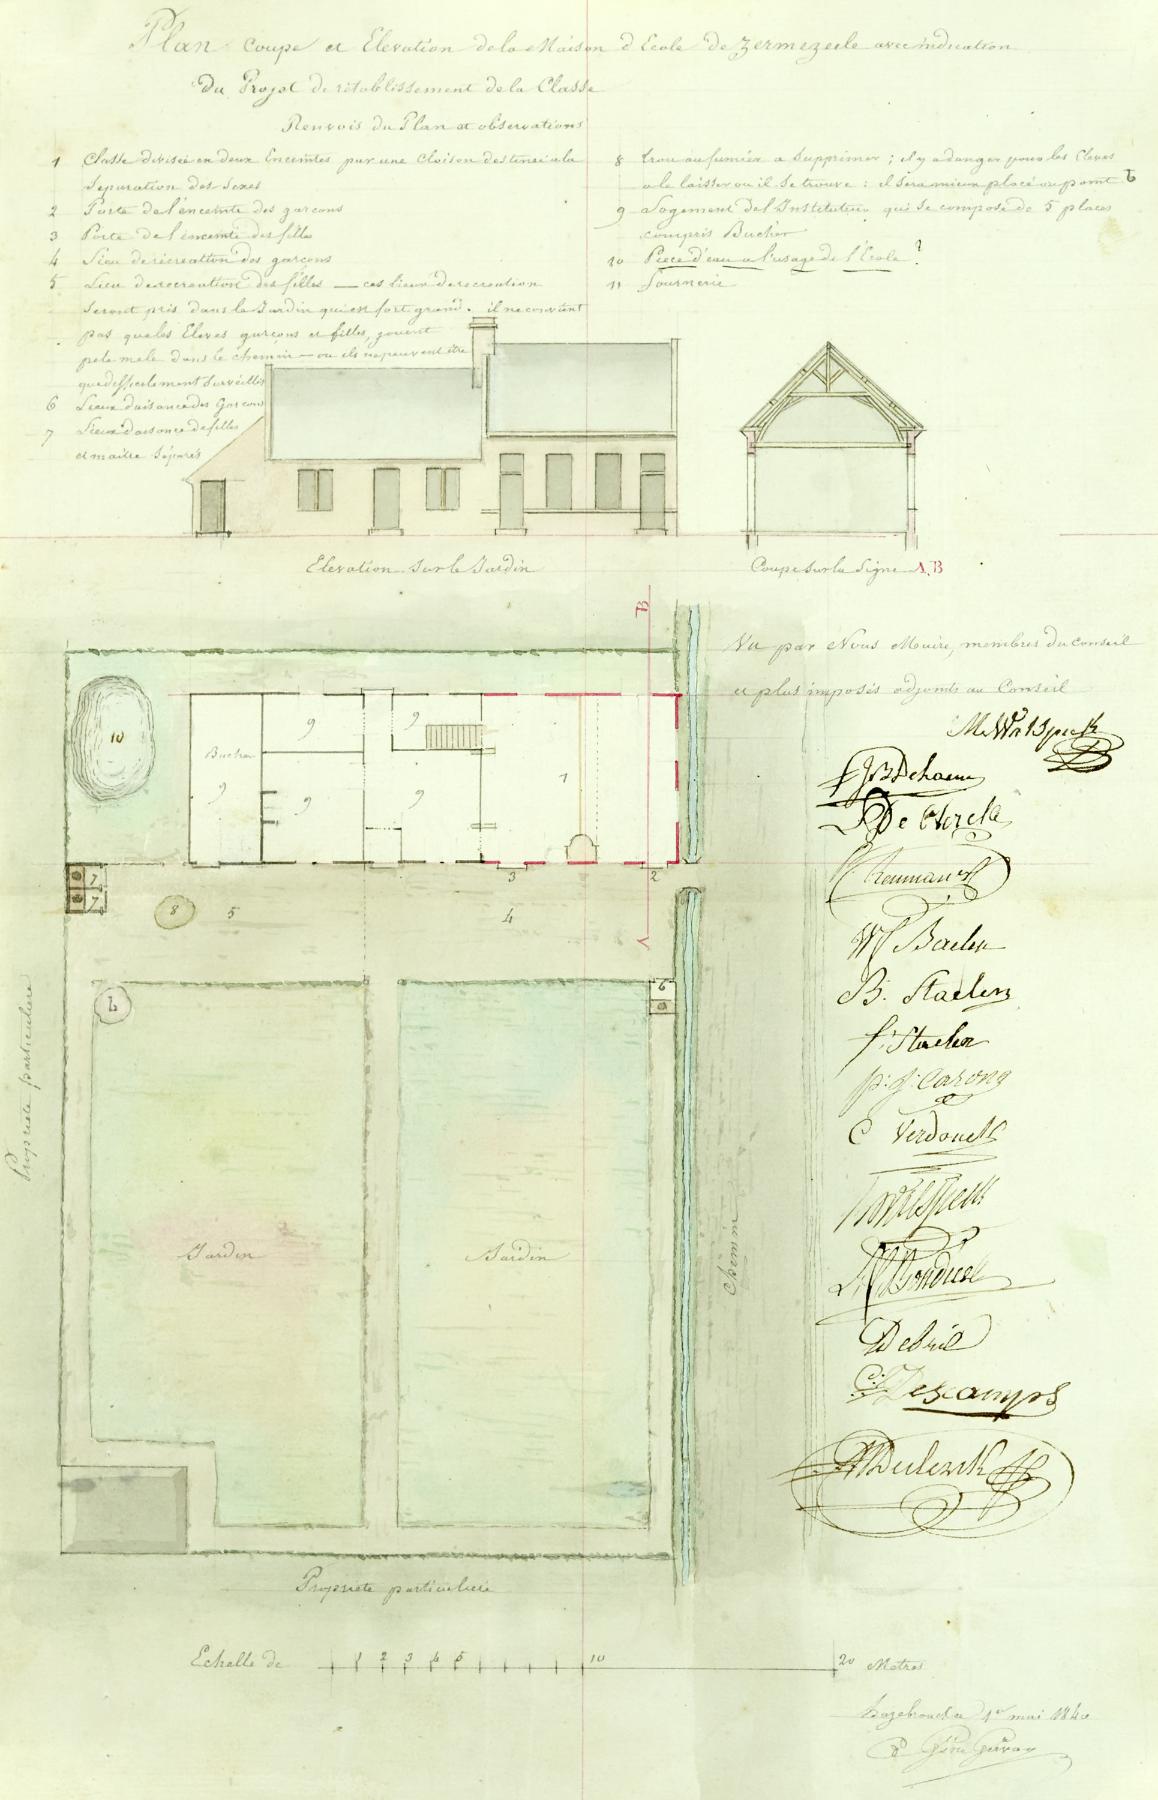 Plan Coupe et Elevation de la Maison d'Ecole de Zermezeele avec indication
Du Projet de rétablissement de la Classe
Renvois du Plan et observations
1 Classe divisée en deux Enceintes par une Cloison destinée a la
Separation des Sexes
2 Porte de l'enceinte des garcons
3 Porte de l'enceinte des filles
4 Lieu de récréation des garcons
5 Lieu de recreation des filles — ces lieux de recreation
Seront pris dans le Jardin qui est fort grand. il ne convient
pas que les Eleves garçons et filles, jouent
pele mele dans le chemin — ou ils ne peuvent être
que difficilement Surveillés
6 Lieux d'aisance des Garcons
7 Lieux d'aisance des filles
et maitre Séparés
8 trou au fumier a Supprimer ; il y a danger pour les Eleves
a le laisser ou il Se trouve : il Sera mieux placé au point b
9 Logement de l'Instituteur qui Se compose de 5 places
compris Bucher
10 Piece d'eau a l'usage de l'Ecole ?
11 fournerie
Elevation Sur le Jardin
Coupe Sur la Ligne A, B
B
Vu par Nous Maire, membres du Conseil
et plus imposés adjoints au Conseil
10
Bucher
9
9
9
9
9
1
3
2
7
7
8
5
4
A
b
6
Propriete particuliere
Jardin
Jardin
Chemin
Propriete particuliere
JB Dehaene
De Clerck
W Baelen
B. Staelen
f. Staelen
p. J. Carong
C Verdonck
Debril
C. Descamps
Echelle de 1 2 3 4 5 10 20 Metres
hazebrouck le 1er mai 184